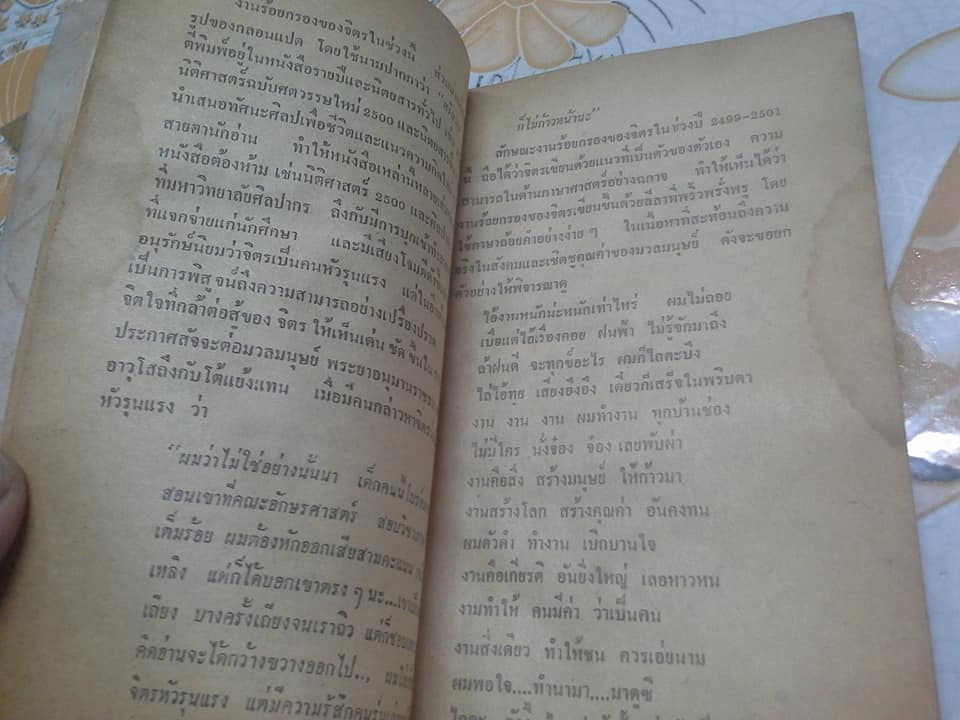 งานร้อยกรองของจิตรในช่วงนี้
รูปของกลอนแปด โดยใช้นามปากกาว่า
ตีพิมพ์อยู่ในหนังสือรายปีและนิตยสารทั่วไป
นิติศาสตร์ฉบับศตวรรษใหม่ 2500 และนิตยสาร
นำเสนอทัศนะศิลปเพื่อชีวิตและแนวความคิด
สายตานักอ่าน ทำให้หนังสือเหล่านี้หลาย
หนังสือต้องห้าม เช่นนิติศาสตร์ 2500 และ
ที่มหาวิทยาลัยศิลปากร ถึงกับมีการบุกเข้า
ที่แจกจ่ายแก่นักศึกษา และมีเสียงโจมตี
อนุรักษ์นิยมว่าจิตรเป็นคนหัวรุนแรง แต่ใน
เป็นการพิสูจน์ถึงความสามารถอย่างเปรื่องปราด
จิตใจที่กล้าต่อสู้ของ จิตร ให้เห็นเด่น ชัด ขึ้นใน
ประกาศสัจจะต่อมวลมนุษย์ พระยาอนุมานราชธน
อาวุโสถึงกับโต้แย้งแทน เมื่อมีคนกล่าวหาจิตร
หัวรุนแรง ว่า
“ผมว่าไม่ใช่อย่างนั้นนา เด็กคนนี้
สอนเขาที่คณะอักษรศาสตร์ สอบวิชา
เต็มร้อย ผมต้องหักออกเสียสามคะแนน
เหลิง แต่ก็ได้บอกเขาตรง ๆ นะ...
เถียง บางครั้งเถียงจนเราฉิว แต่ก็ชอบ
คิดอ่านจะได้กว้างขวางออกไป..,
จิตรหัวรุนแรง แต่มีความรู้สึกคนรุ่น
ก็ไม่ก้าวหน้านะ”
ลักษณะงานร้อยกรองของจิตรในช่วงปี 2499-2501
นี้ ถือได้ว่าจิตรเขียนด้วยแนวที่เป็นตัวของตัวเอง ความ
สามารถในด้านภาษาศาสตร์อย่างฉกาจ ทำให้เห็นได้ว่า
งานร้อยกรองของจิตรเขียนขึ้นด้วยลีลาที่พริ้วพรั่งพรู โดย
ใช้ภาษาถ้อยคำอย่างง่าย ๆ ในเนื้อหาที่สะท้อนถึงความ
จริงในสังคมและเชิดชูคุณค่าของมวลมนุษย์ ดังจะขอยก
ตัวอย่างให้พิจารณาดู
ไอ้งานหนักน่ะหนักเท่าไหร่ ผมไม่ถอย
เบื่อแต่ไอ้เรื่องคอย ฝนฟ้า ไม่รู้จักมาถึง
ถ้าฝนดี จะทุกข์อะไร ผมก็ไถตะบึง
ไล่ไอ้ทุย เสียงอึงอึง เดี๋ยวก็เสร็จในพริบตา
งาน งาน งาน ผมทำงาน ทุกบ้านช่อง
ไม่มีใคร นั่งจ๋อง จ้อง เลยพับผ่า
งานคือสิ่ง สร้างมนุษย์ ให้ก้าวมา
งานสร้างโลก สร้างคุณค่า อันคงทน
ผมตัวดำ ทำงาน เบิกบานใจ
งานคือเกียรติ อันยิ่งใหญ่ เลอหาวหน
งามทำให้ คนมีค่า ว่าเป็นคน
งานสิ่งเดียว ทำให้ชน ควรเอ่ยนาม
ผมพอใจ....ทำนามา....มาดูซี